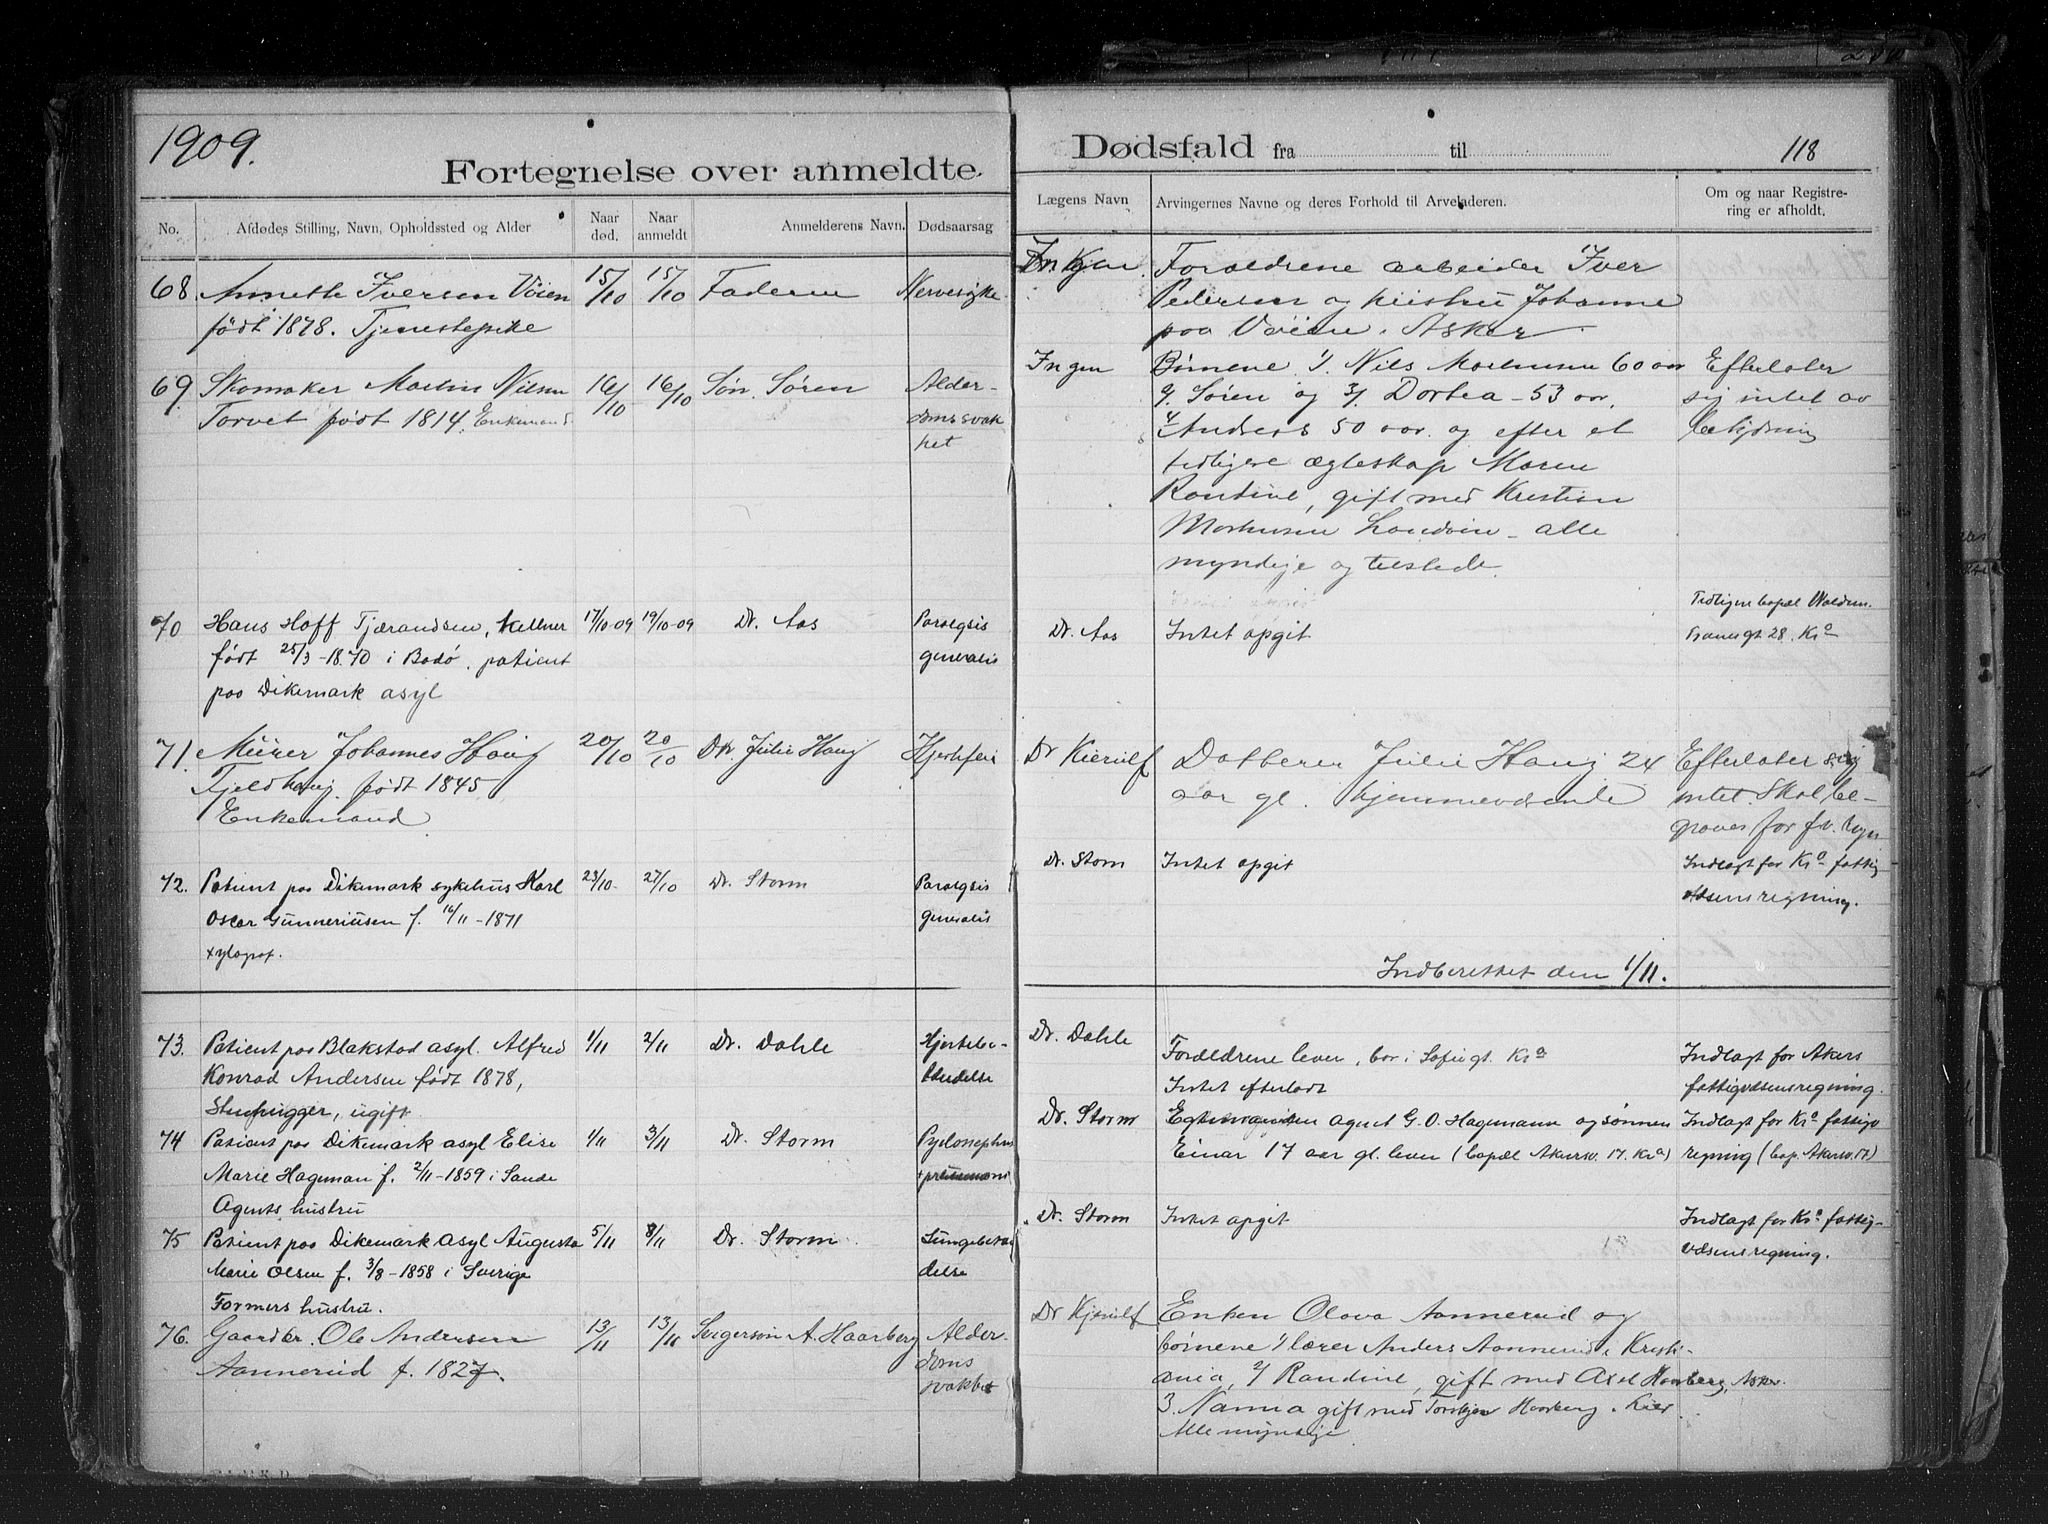 1909.
Fortegnelse over anmeldte
Dødsfald fra til
118
No.
Afdødes Stilling, Navn, Opholdssted og Alder
Naar død.
Naar anmeldt
Anmelderens Navn.
Dødsaarsag
Lægens Navn
Arvingernes Navne og deres Forhold til Arveladeren.
Om og naar Registre-
ring er afholdt.
68. Anneth Iversen Vøien 15/10 15/10 Faderen Nervesyke
født 1878. Tjenestepike
Ingen. Forældrene arbeider Iver
Pedersen og hustru Johanne
paa Vøien, Asker
69. Skomaker Martin Nilsen 16/10 16/10 Søn Søren Alder-
Torvet født 1814. Enkemand domssvak
het
Ingen Børnene 1/. Nils 60 aar Efterlater
2/. Søren og 3/. Dortea - 53 aar, sig intet av
4/ Anders 50 aar. og efter et betydning
tidligere ægteskap Maren
Randine, gift med Kristian
alle
myndige og tilstede.
70 Hans Hoff Tjærandsen, kellner 17/10-09 19/10-09 Dr. Aas Paralysis
født 25/3-1870 i Bodø, patient generalis
paa Dikemark asyl
Dr. Aas Intet opgit Tidligere bopæl Waldem.
Tranesgt 28. Kra
71. Murer Johannes Haug 20/10 20/10 Dtr. Julie Haug Hjertefeil
Fjeldhaug. født 1845
Enkemand
Dr Kierulf Datteren Julie Haug 24 Efterlater sig
aar gl. hjemmeværende intet. Skal be-
graves for fv. regn
72. Patient paa Dikemark sykehus Karl 23/10 27/10 Dr. Storm Paralysis
Oscar Gunneriusen f. 16/11-1871 generalis
xylograf.
Dr. Storm Intet opgit Indlagt for Kra fattig
væsensregning.
Indberettet den 1/11.
73. Patient paa Blakstad asyl. Alfred 1/11 2/11 Dr. Dahle Hjertebe-
Konrad Andersen født 1878, tændelse
Stenhugger, ugift.
Dr. Dahle Forældrene lever, bor i Sofiegt. Kra Indlagt for Akers
Intet efterladt fattigvæsensregning.
74 Patient paa Dikemark asyl Elise 1/11 3/11 Dr. Storm
Marie Hageman f. 2/11-1859 i Sande
Agents hustru
Dr. Storm Egtemanden agent G. O. Hagemann og sønnen Indlagt for Kra fattigv
Einar 17 aar gl. lever (bopæl Akersv. 17. Kra) regning (bop. Akersv. 17)
75 Patient paa Dikemark asyl Augusta 5/11 8/11 Dr. Storm Lungebetæn
Marie Olsen f. 3/8-1858 i Sverige delse
Formers hustru.
Dr. Storm Intet opgit Indlagt for Kra fattig-
væsensregning.
76. Gaardbr. Ole Andersen 13/11 13/11 Svigersøn A. Haarberg Alder-
Aannerud f. 1827. doms
svakhet
Dr Kjerulf Enken Olava Aannerud og
børnene 1/ lærer Anders Aannerud, Kristi-
ania, 2/ Randine, gift med Axel Haarberg, Asker.
3. Nanna gift med Torbjørn Haarberg,
Alle myndige